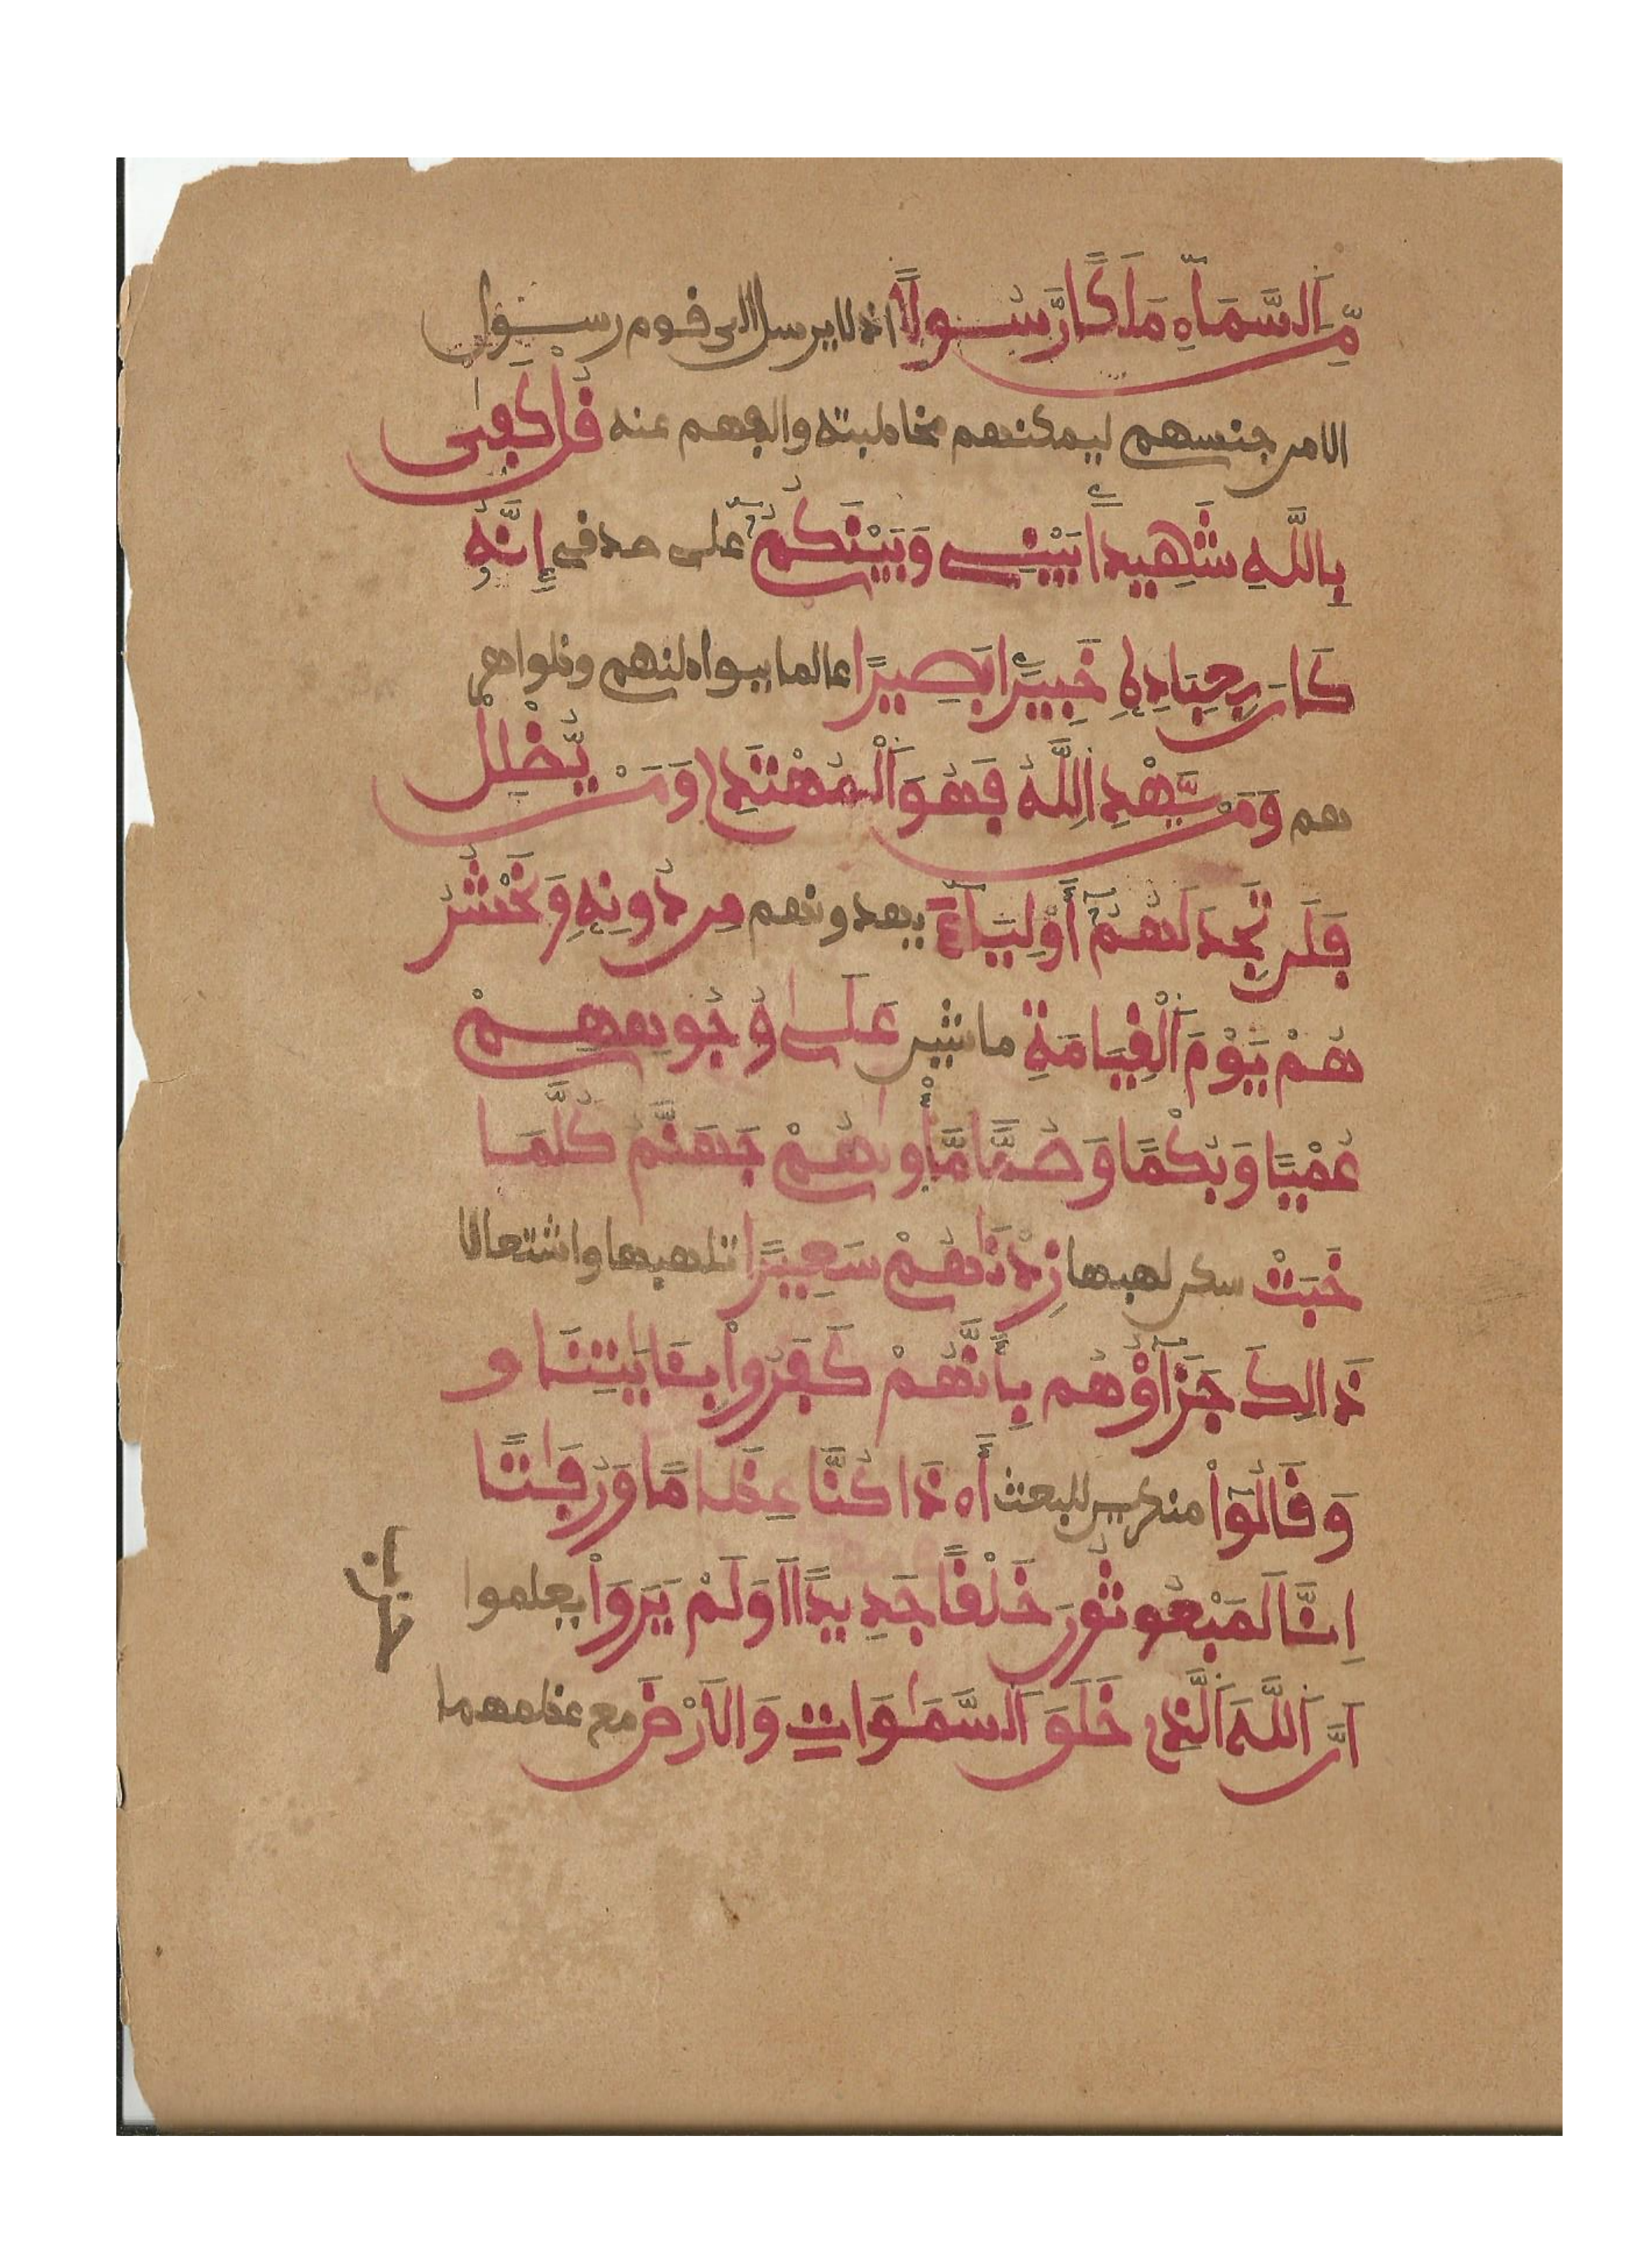 مِّنَ اَلسَّمَآءِ مَلَكًا رَّسُولًا اذ لا يرسل الى قوم رسول
الا من جنسهم ليمكنهم مخاطبته والفهم عنه قُلْ كَفِىٰ
بِاللَّهِ شَهِيدًا بَيْنِے وَبَيْنَكُمُۥٓ على صدقى إِنَّهُۥ
كَانَ بِعِبَادِهِۦ خَبِيرًا بَصِيرًا عالما ببواطنهم وظواهر
هم وَمَنْ يَّهْدِ اِللَّهُ فَهُوَ اَلْمُهْتَدِۦ وَمَنْ يُّضْلِلْ
فَلَن تَجِدَ لَهُمُۥٓ أَوْلِيَآءَ يهدونهم مِن دُونِهِۦ وَنَحْشُرُ
هُمْ يَوْمَ اَلْقِيَامَةِ ماشين عَلَىٰ وُجُوهِهِمْ
عُمْيًا وَبُكْمًا وَصُمًّا مَّأْوٜىٰهُمْ جَهَنَّمُ كُلَّمَا
خَبَتْ سكن لهبها زِدْنَاهُمْ سَعِيرًا تلهبها واشتعالا
ذَالِكَ جَزَآؤُهُم بِأَنَّهُمْ كَفَرُواْ بِـَٔايَٰتِنَا و
وَقَالُوٓاْ منكرين للبعث أَ.ذَا كُنَّا عِظَٰمًا وَرُفَٰتًا
اِنَّا لَمَبْعُوثُونَ خَلْقًا جَدِيدًا اَوَلَمْ يَرَوَاْ يعلموا
اَنَّ اَللَّهَ اَلَّذِے خَلَقَ اَلسَّمَٰوَاتِ وَالَارْضَ مع عظمهما